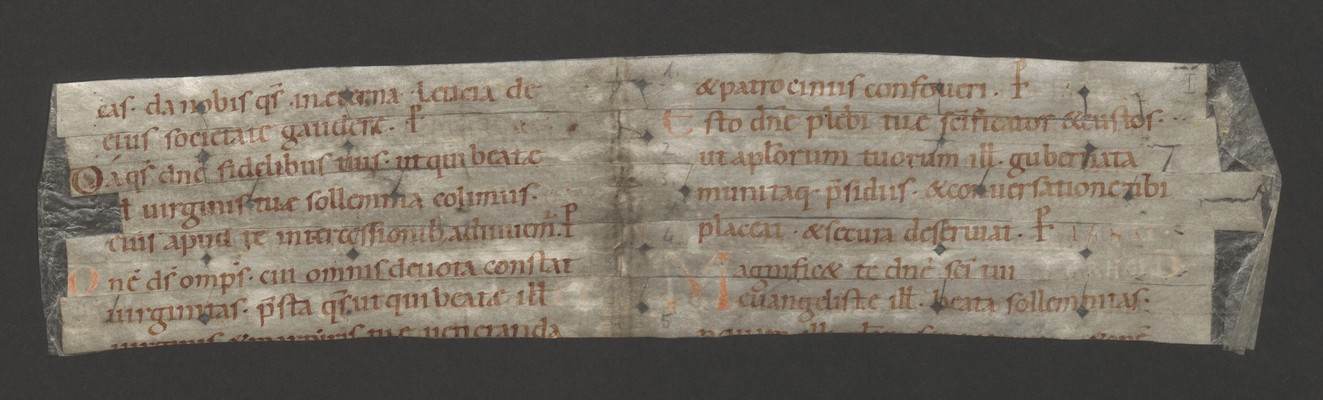 eas. da nobis qs̄. in eterna. leticia de
eius societate gaudere. P̄
Da qs̄ dn̄e fidelibus tuis. ut qui beate
ił uirginis tue sollemnia colimus.
eius apud te intercessionib; adiuuem̄. P̄
On̄e ds̄ omps̄. cui omnis deuota constat
uirginitas. p̄sta qs̄. ut qui beatæ ill̄
uirginis & martiris tue ueneranda
& patrociniis confoueri. P̄
Esto dn̄e plebi tue sc̄ificator & custos.
ut apl̄orum tuorum ill̄. gubernata
munitaq; p̄sidiis. & conuersatione tibi
placeat. & secura deseruiat. P̄
Magnific& te dn̄e sc̄i tui
euangelistæ ill̄. beata sollemnitas:
1
2
3
4
5
I
7